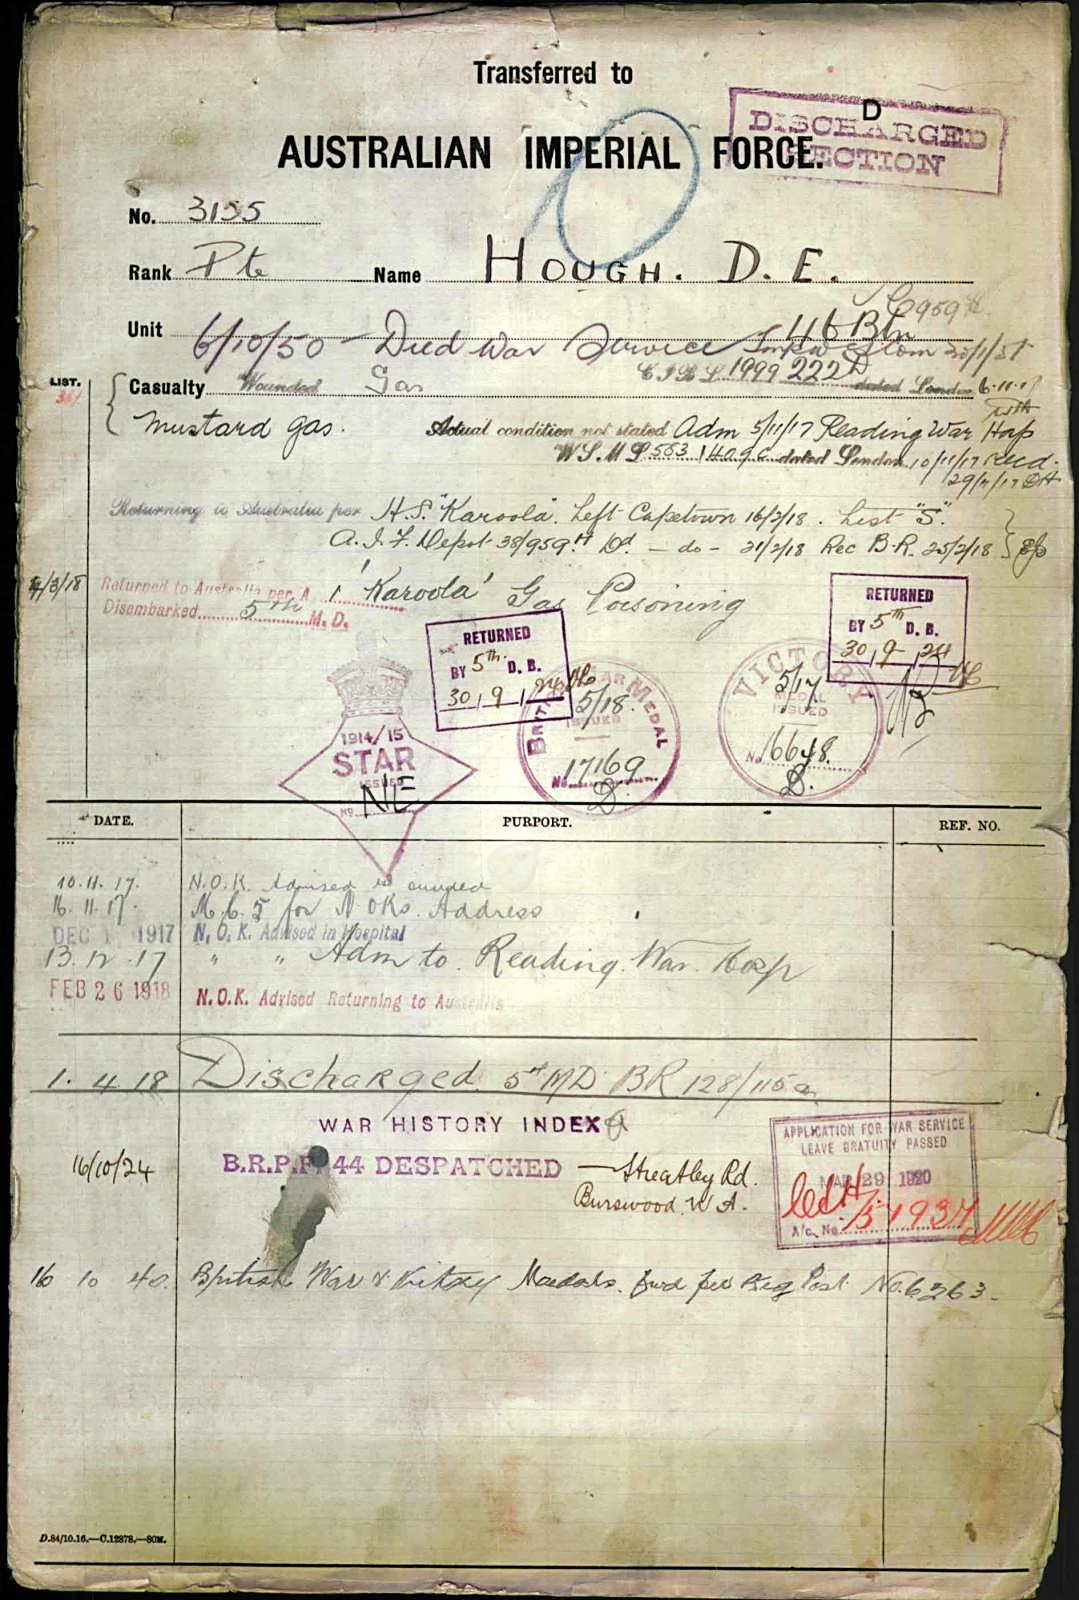 Transferred to
D
DISCHARGED
SECTION
AUSTRALIAN IMPERIAL FORCE.
No. 3155
Rank Pte Name HOUGH. D. E.
Unit 46 Btn
6/10/50 - Died War Service
LIST.
Casualty Wounded Gas 1999 222 dated London 6.11.17
Mustard gas. Actual condition not stated Adm 5/11/17 Reading War Hosp
dated London 10/11/17
Returning to Australia per H.S. "Karoola". Left Capetown 16/2/18. List "S".
A.I.F. Depot 38/959 - do - 21/2/18 Rec B.R. 25/2/18
4/3/18 Returned to Australia per 'Karoola' Gas Poisoning
Disembarked 5th M. D.
RETURNED
BY 5th D. B.
30 9 24
RETURNED
BY 5th D. B.
30 9 24
1914/15
STAR
ISSUED
No. N/E
BRITISH WAR MEDAL
5/18.
ISSUED
No. 17169
D.
VICTORY
5/17
MEDAL
ISSUED
No. 16648.
D.
DATE. PURPORT. REF. NO.
10.11.17. N.O.K. Advised Wounded
16.11.17. for N OKs. Address
DEC 1917 N. O. K. Advised in Hospital
13.12.17 " " Adm to. Reading. War. Hosp
FEB 26 1918 N. O. K. Advised Returning to Australia
1. 4 18 Discharged. 5th MD BR 128/115
WAR HISTORY INDEX
16/10/24 B.R.P. 44 DESPATCHED - Streatley Rd.
Burswood. W A.
APPLICATION FOR WAR SERVICE
LEAVE GRATUITY PASSED
MAR 29 1920
A/c. No.
16 10 40. British War & Victory Medals. fwd per Reg Post No. 6263.
D.84/10.16.—C.12878.—80M.